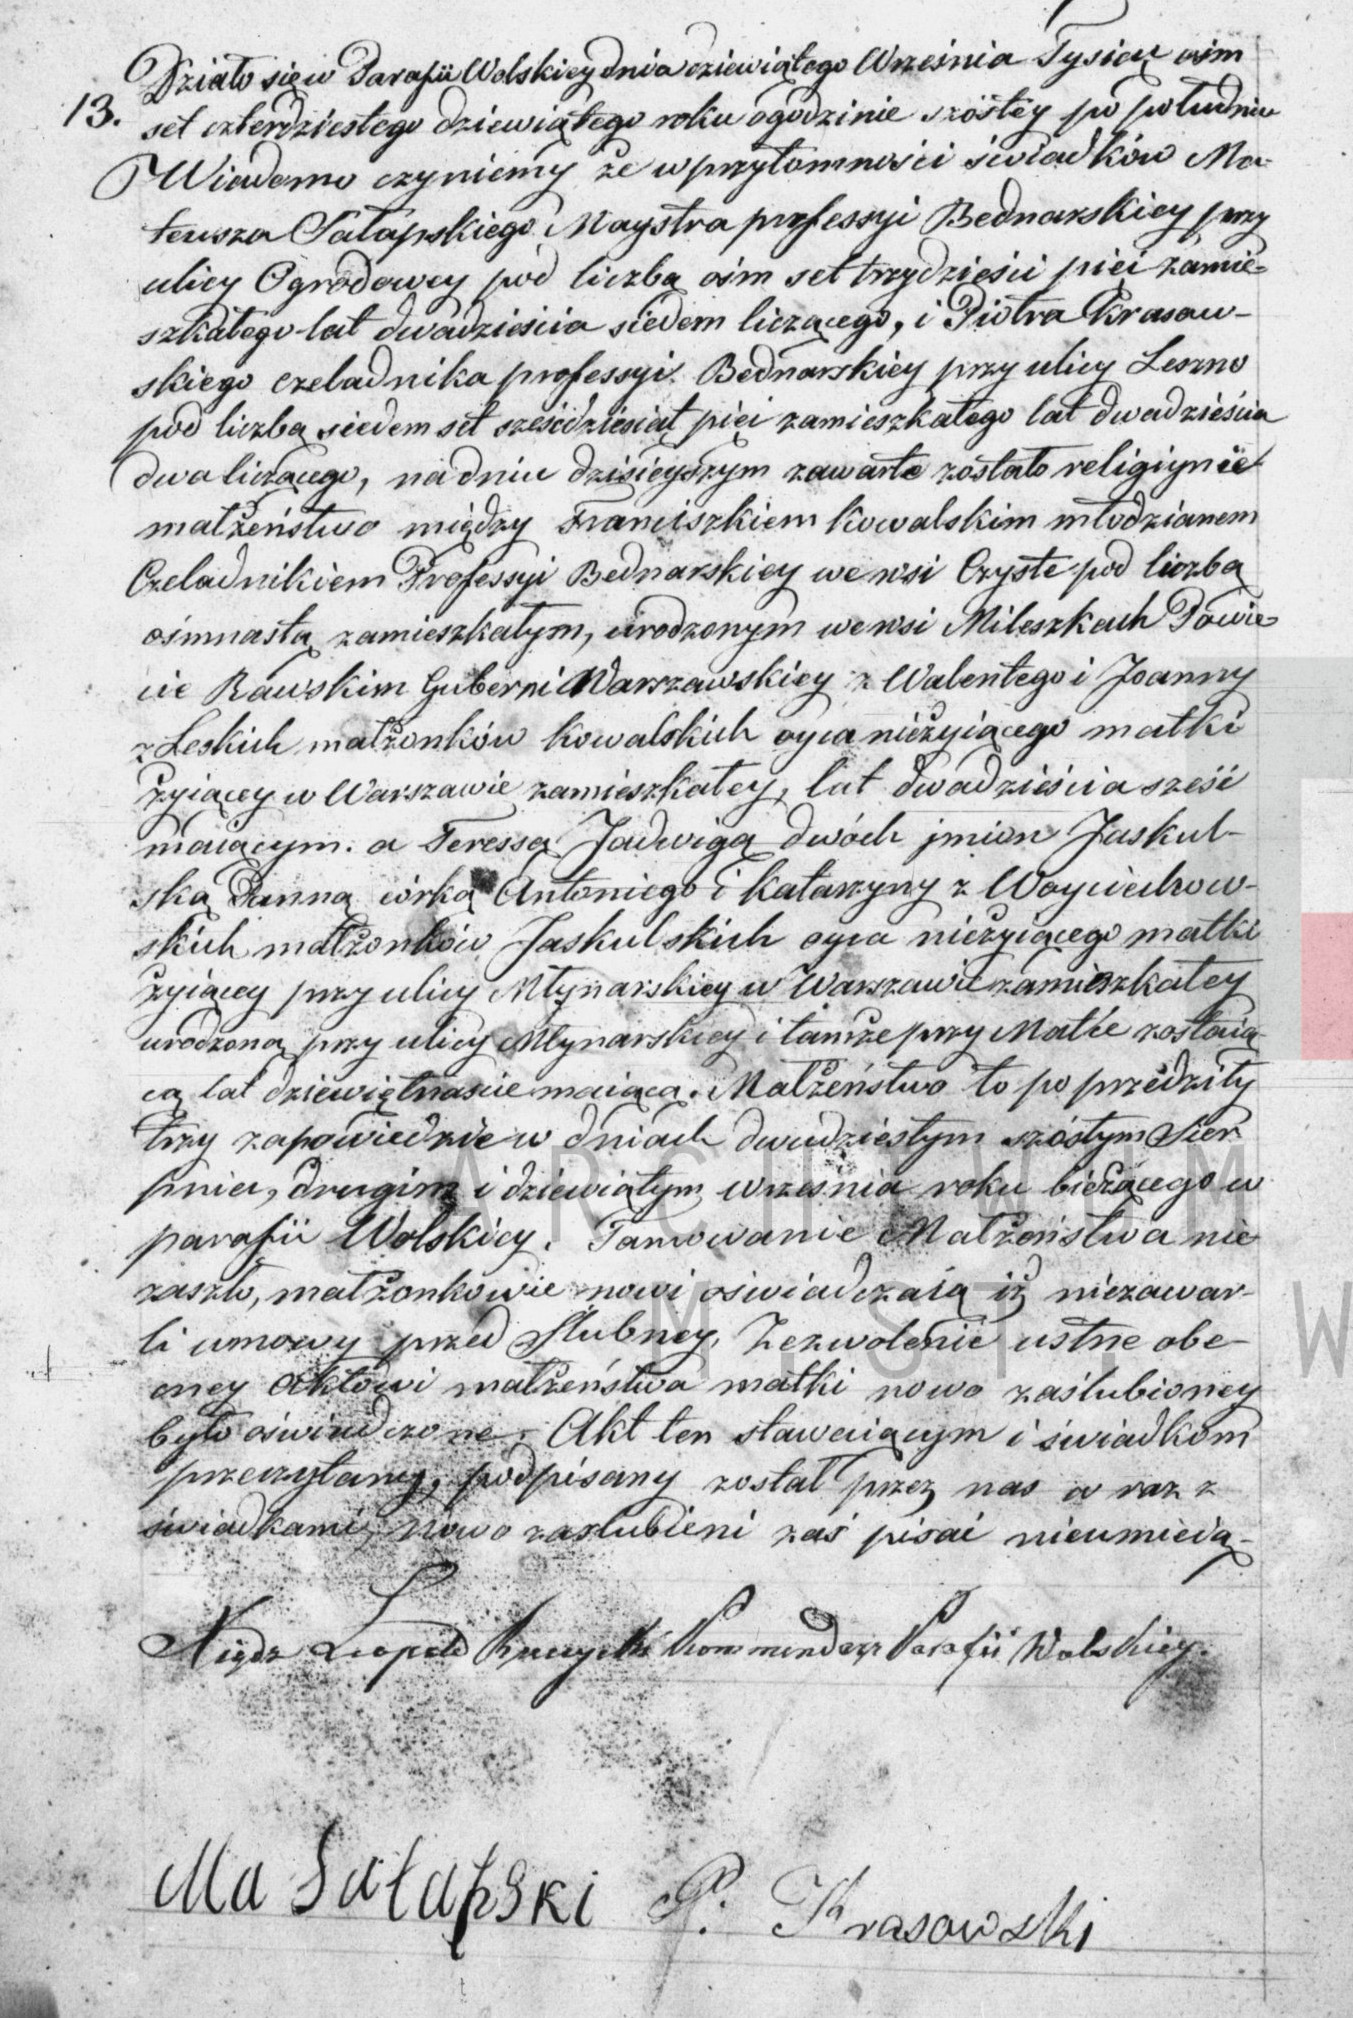 Działo się w Parafii Wolskiey dnia dziewiątego Września Tysiąc ośm
13. set czterdziestego dziewiątego roku o godzinie szóstey po południu
Wiadomo czyniemy że w przytomności świadków Ma-
teusza Sałapskiego Maystra professyi Bednarskiey przy
ulicy Ogrodowey pod liczbą ośm set trzydzieści pięć zamie-
szkałego lat dwadzieścia siedem liczącego, i Piotra Krasow-
skiego czeladnika professyi Bednarskiey przy ulicy Leszno
pod liczbą siedem set sześćdziesiąt pięć zamieszkałego lat dwadzieścia
dwa liczącego, na dniu dzisieyszym zawarte zostało religiynie
małżeństwo między Franciszkiem Kowalskim młodzianem
Czeladnikiem Professyi Bednarskiey we wsi Czyste pod liczbą
ośmnastą zamieszkałym, urodzonym we wsi Mileszkach Powie-
cie Rawskim Guberni Warszawskiey z Walentego i Joanny
z Leskich małżonków Kowalskich oyca nieżyiącego matki
żyiącey w Warszawie zamieszkałey, lat dwadzieścia sześć
maiącym. a Teressą Jadwigą dwóch jmion Jaskul-
ską Panną córką Antoniego i Katarzyny z Woyciechow-
skich małżonków Jaskulskich oyca nieżyiącego matki
żyiącey przy ulicy Młynarskiey w Warszawie zamieszkałey
urodzoną przy ulicy Młynarskiey i tamże przy Matce zostaią-
cą lat dziewiętnaście maiącą. Małżeństwo to poprzedziły
trzy zapowiedzie w dniach dwudziestym szóstym Sier
pnia, drugim i dziewiątym września roku bieżącego w
parafii Wolskiey. Tamowanie Małżeństwa nie
zaszło, małżonkowie nowi oświadczaią iż niezawar-
li umowy przed Ślubney, Zezwolenie ustne obe-
cney Aktowi małżeństwa matki nowo zaślubioney
było oświadczone. Akt ten stawaiącym i świadkom
przeczytany, podpisany został przez nas w raz z
świadkami, nowo zaślubieni zaś pisać nieumieią.
Xiądz Leopold Kommendarz Parafii Wolskiey.
Ma Sałapski P. Krasowski
ARCHIWUM
M. ST. W